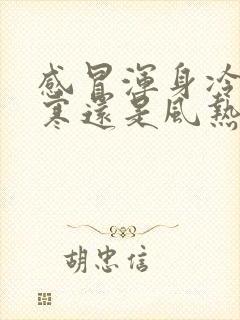 感冒渾身冷
寒還是風熱
胡忠信